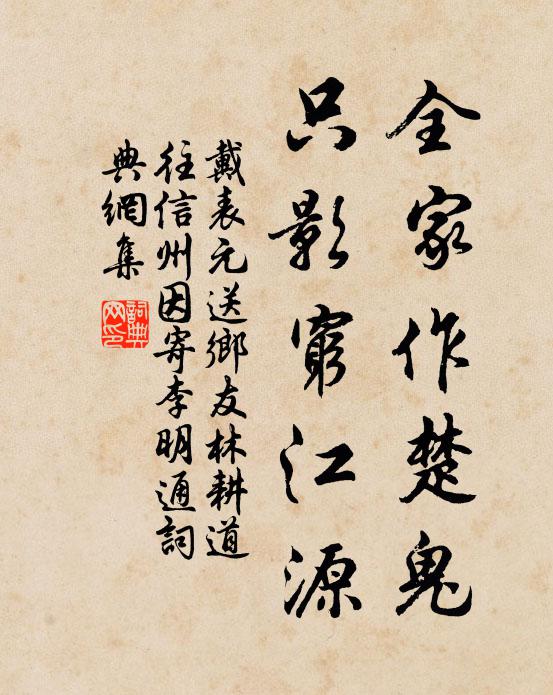 全家作楚鬼
只影窮江源
戴表元送鄉友林耕道
往信州因寄李明通詞
典網集
詞典網印